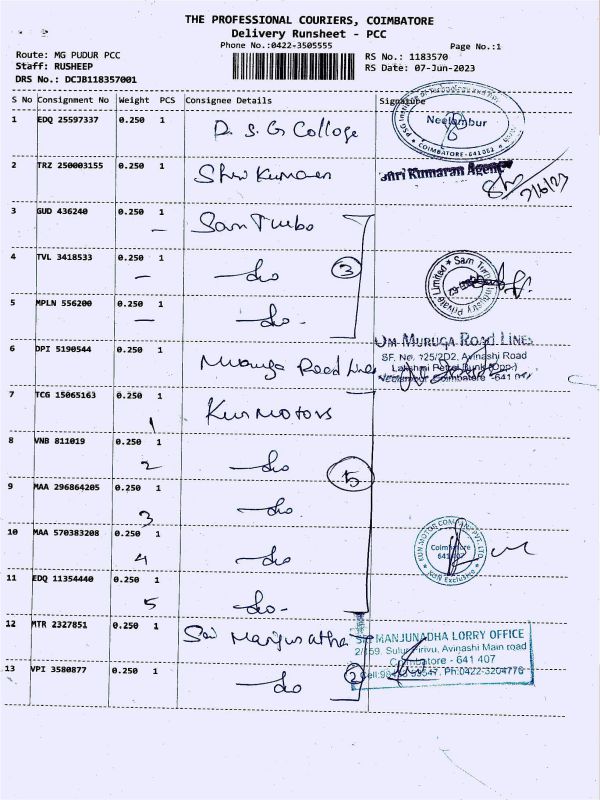 THE PROFESSIONAL COURIERS, COIMBATORE
Delivery Runsheet - PCC
Phone No.:0422-3505555
Page No.:1
Route: MG PUDUR PCC
RS No.: 1183570
Staff: RUSHEEP
RS Date: 07-Jun-2023
DRS No.: DCJB118357001
S No Consignment No Weight PCS Consignee Details Signature
1 EDQ 25597337 0.250 1 P. S. G College
Neelambur
COIMBATORE-641062
2 TRZ 250003155 0.250 1 Shri Kumaran
Shri Kumaran Agency
7/6/23
3 GUD 436240 0.250 1 Sam Turbo
4 TVL 3418533 0.250 1 - do
3
Sam Turbo Industry Private Limited
5 MPLN 556200 0.250 1 - do -
6 DPI 5190544 0.250 1 Muruga Road Lines
OM MURUGA ROAD LINES
SF. No. 125/2D2, Avinashi Road
Lakshmi Petrol Bunk (Opp.)
Neelambur Coimbatore - 641
7 TCG 15065163 0.250 1 Kun Motors
1
8 VNB 811019 0.250 1 - do
2
5
9 MAA 296864205 0.250 1 - do
3
10 MAA 570383208 0.250 1 - do
4
KUN MOTOR COMPANY PVT. LTD.
Coimbatore
Kun Exclusive
11 EDQ 11354440 0.250 1 - do -
5
12 MTR 2327851 0.250 1 Sai Manjunatha
MANJUNADHA LORRY OFFICE
2/159. Sulur Pirivu, Avinashi Main road
Coimbatore - 641 407
Ph:0422-3204776
13 VPI 3580877 0.250 1 - do
2